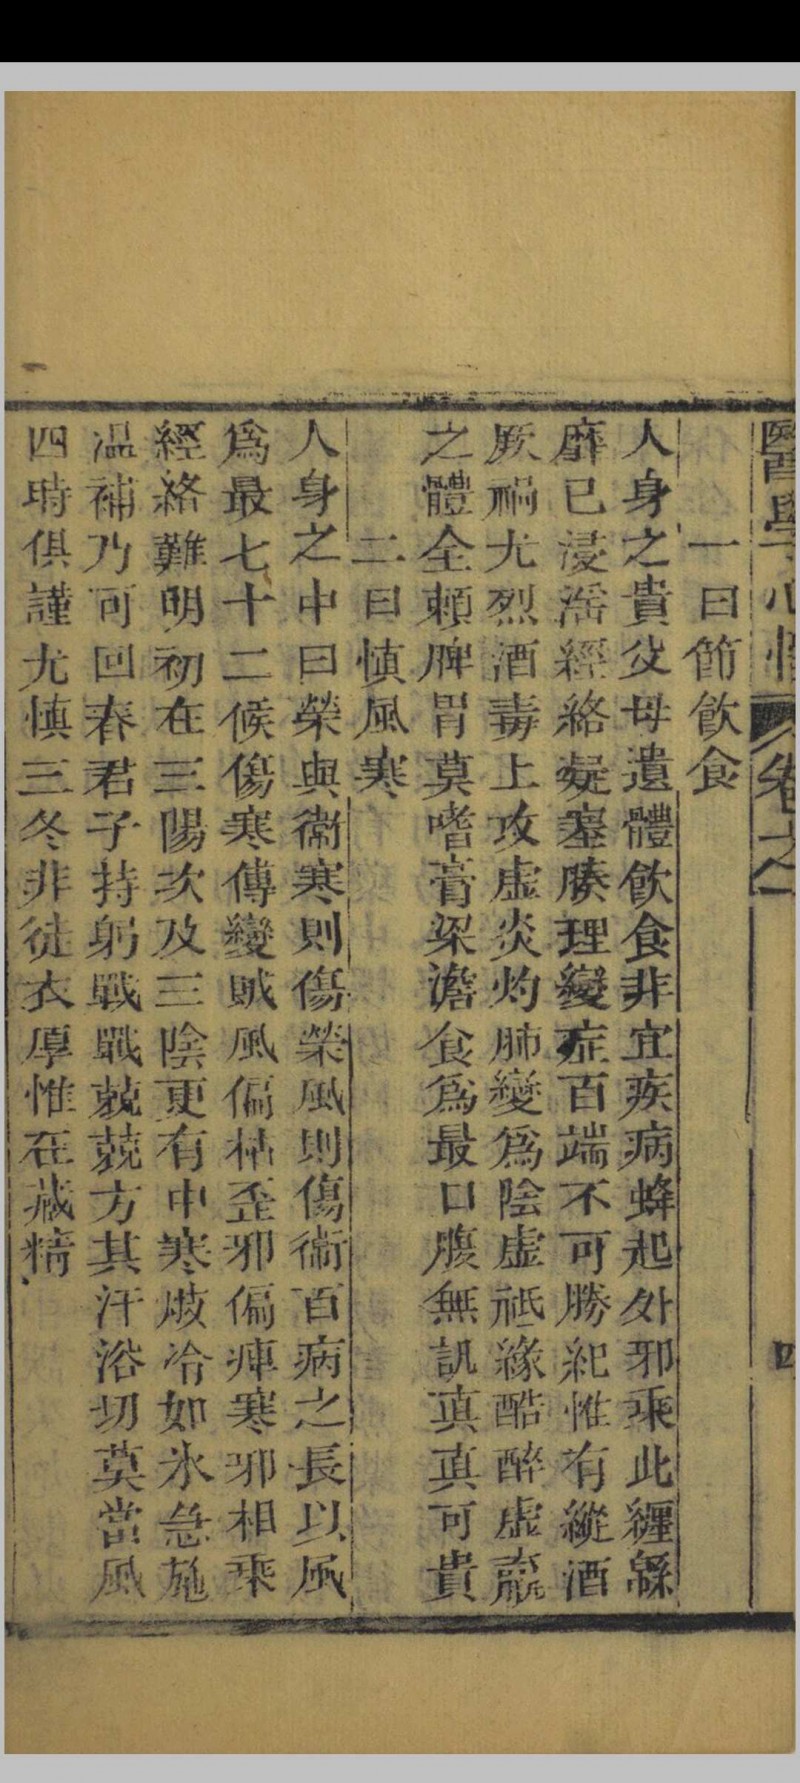 醫學心悟 卷之一 四
一曰節飲食
人身之貴父母遺體飲食非宜疾病蜂起外邪乘此纒緜
靡已浸滛經絡凝塞腠理變症百端不可勝紀惟有縱酒
厥禍尤烈酒毒上攻虛炎灼肺變爲陰虛祗緣酷醉虛羸
之體全頼脾胃莫嗜膏粱澹食爲最口腹無訊真真可貴
二曰慎風寒
人身之中曰榮與衛寒則傷榮風則傷衛百病之長以風
爲最七十二候傷寒傳變賊風偏枯歪邪偏痺寒邪相乘
經絡難明初在三陽次及三陰更有中寒肢冷如氷急施
温補乃可回春君子持躬戰戰兢兢方其汗浴切莫當風
四時俱謹尤慎三冬非徒衣厚惟在藏精